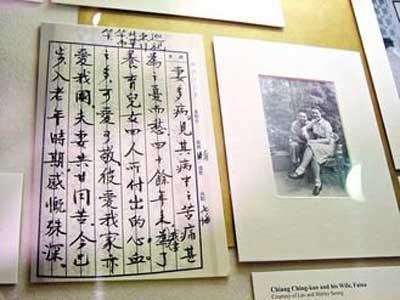 妻多病,見其病中之苦痛甚
為之憂而愁四十餘年來為了
養育兒女四人所付出的心血
之多,可愛可敬彼愛我家亦
愛我國,夫妻共甘同苦,今已
步入老年時期感慨殊深。
Chiang Ching-kuo and his Wife, Faina
Courtesy of Leo and Shirley Soong